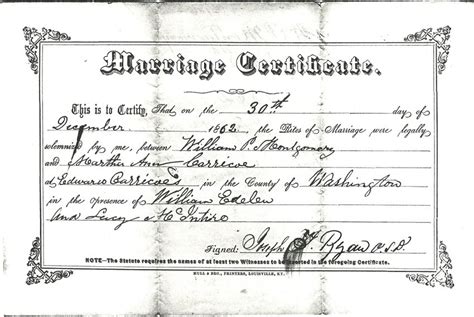 Marriage Certificate.
This is to Certify, That on the 30th day of
December 1862, the Rites of Marriage were legally
solemnized by me, between William P. Montgomery
and Martha Ann Carricoe
at Edward Carricoe's in the County of Washington
in the presence of William Edelen
and Lucy McIntire
Signed: Joseph T. Ryan O.S.D.
NOTE—The Statute requires the names of at least two Witnesses to be inserted in the foregoing Certificate.
HULL & BRO., PRINTERS, LOUISVILLE, KY.